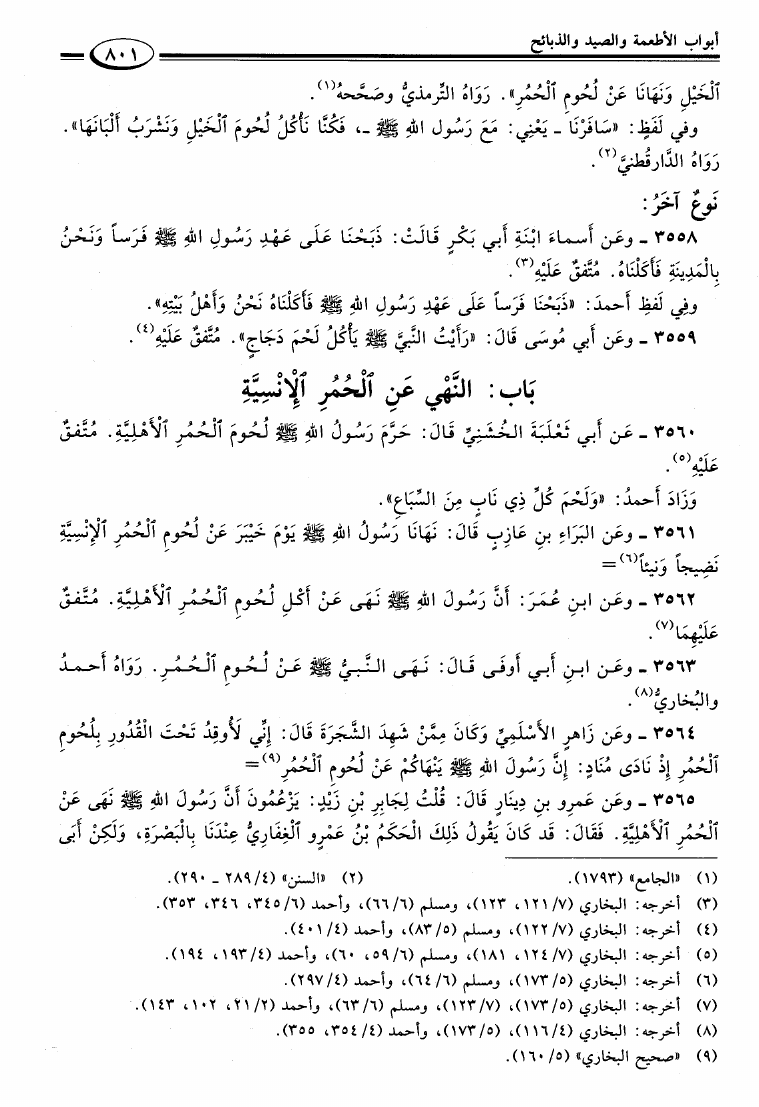 أبواب الأطعمة والصيد والذبائح
٨٠١
ٱلْخَيْلِ وَنَهَانَا عَنْ لُحُومِ ٱلْحُمُرِ». رَوَاهُ التِّرمذيُّ وصَحَّحهُ(١).
وفي لَفظٍ: «سَافَرْنَا ـ يَعْنِي: مَعَ رَسُولِ اللهِ ﷺ ـ، فَكُنَّا نَأْكُلُ لُحُومَ ٱلْخَيْلِ وَنَشْرَبُ أَلْبَانَهَا».
رَوَاهُ الدَّارقُطنيَّ(٢).
نَوعٌ آخَرُ:
٣٥٥٨ ـ وعَن أَسماءَ ابْنَةِ أَبي بَكْرٍ قَالَتْ: ذَبَحْنَا عَلَى عَهْدِ رَسُولِ اللهِ ﷺ فَرَساً وَنَحْنُ
بِالْمَدِينَةِ فَأَكَلْنَاهُ. مُتَّفقٌ عَلَيْهِ(٣).
وفِي لَفظِ أَحمدَ: «ذَبَحْنَا فَرَساً عَلَى عَهْدِ رَسُولِ اللهِ ﷺ فَأَكَلْنَاهُ نَحْنُ وَأَهْلُ بَيْتِهِ».
٣٥٥٩ ـ وعَن أَبي مُوسَى قَالَ: «رَأَيْتُ النَّبيَّ ﷺ يَأْكُلُ لَحْمَ دَجَاجٍ». مُتَّفقٌ عَلَيْهِ(٤).
بَاب: النَّهْي عَنِ ٱلْحُمُرِ ٱلإِنْسِيَّةِ
٣٥٦٠ ـ عَن أَبي ثَعْلَبَةَ الخُشَنِيِّ قَالَ: حَرَّمَ رَسُولُ اللهِ ﷺ لُحُومَ ٱلْحُمُرِ ٱلأَهْلِيَّةِ. مُتَّفقٌ
عَلَيْهِ(٥).
وَزَادَ أَحمدُ: «وَلَحْمَ كُلِّ ذِي نَابٍ مِنَ السِّبَاعِ».
٣٥٦١ ـ وعَن البَرَاءِ بنِ عَازِبٍ قَالَ: نَهَانَا رَسُولُ اللهِ ﷺ يَوْمَ خَيْبَرَ عَنْ لُحُومِ ٱلْحُمُرِ ٱلإِنْسِيَّةِ
نَضِيجاً وَنيئاً(٦)=
٣٥٦٢ ـ وعَن ابنِ عُمَرَ: أَنَّ رَسُولَ اللهِ ﷺ نَهَى عَنْ أَكْلِ لُحُومِ ٱلْحُمُرِ ٱلأَهْلِيَّةِ. مُتَّفقٌ
عَلَيْهِمَا(٧).
٣٥٦٣ ـ وعَن ابنِ أَبي أَوفَى قَالَ: نَهَى النَّبيُّ ﷺ عَنْ لُحُومِ ٱلْحُمُرِ. رَوَاهُ أَحمدُ
والبُخاريُّ(٨).
٣٥٦٤ ـ وعَن زَاهرٍ الأَسْلَمِيِّ وَكَانَ مِمَّنْ شَهِدَ الشَّجَرَةَ قَالَ: إِنِّي لَأُوقِدُ تَحْتَ الْقُدُورِ بِلُحُومِ
ٱلْحُمُرِ إِذْ نَادَى مُنَادٍ: إِنَّ رَسُولَ اللهِ ﷺ يَنْهَاكُمْ عَنْ لُحُومِ ٱلْحُمُرِ(٩)=
٣٥٦٥ ـ وعَن عَمرِو بنِ دِينَارٍ قَالَ: قُلْتُ لِجَابِرِ بْنِ زَيْدٍ: يَزْعُمُونَ أَنَّ رَسُولَ اللهِ ﷺ نَهَى عَنْ
ٱلْحُمُرِ ٱلأَهْلِيَّةِ. فَقَالَ: قَد كَانَ يَقُولُ ذَلِكَ الْحَكَمُ بْنُ عَمْرٍو الْغِفَارِيُّ عِنْدَنَا بِالْبَصْرَةِ، وَلَكِنْ أَبَى
(١) «الجامع» (١٧٩٣). (٢) «السنن» (٤/ ٢٨٩ ـ ٢٩٠).
(٣) أخرجه: البخاري (٧/ ١٢١، ١٢٣)، ومسلم (٦/ ٦٦)، وأحمد (٦/ ٣٤٥، ٣٤٦، ٣٥٣).
(٤) أخرجه: البخاري (٧/ ١٢٢)، ومسلم (٥/ ٨٣)، وأحمد (٤/ ٤٠١).
(٥) أخرجه: البخاري (٧/ ١٢٤، ١٨١)، ومسلم (٦/ ٥٩، ٦٠)، وأحمد (٤/ ١٩٣، ١٩٤).
(٦) أخرجه: البخاري (٥/ ١٧٣)، ومسلم (٦/ ٦٤)، وأحمد (٤/ ٢٩٧).
(٧) أخرجه: البخاري (٥/ ١٧٣)، (٧/ ١٢٣)، ومسلم (٦/ ٦٣)، وأحمد (٢/ ٢١، ١٠٢، ١٤٣).
(٨) أخرجه: البخاري (٤/ ١١٦)، (٥/ ١٧٣)، وأحمد (٤/ ٣٥٤، ٣٥٥).
(٩) «صحيح البخاري» (٥/ ١٦٠).